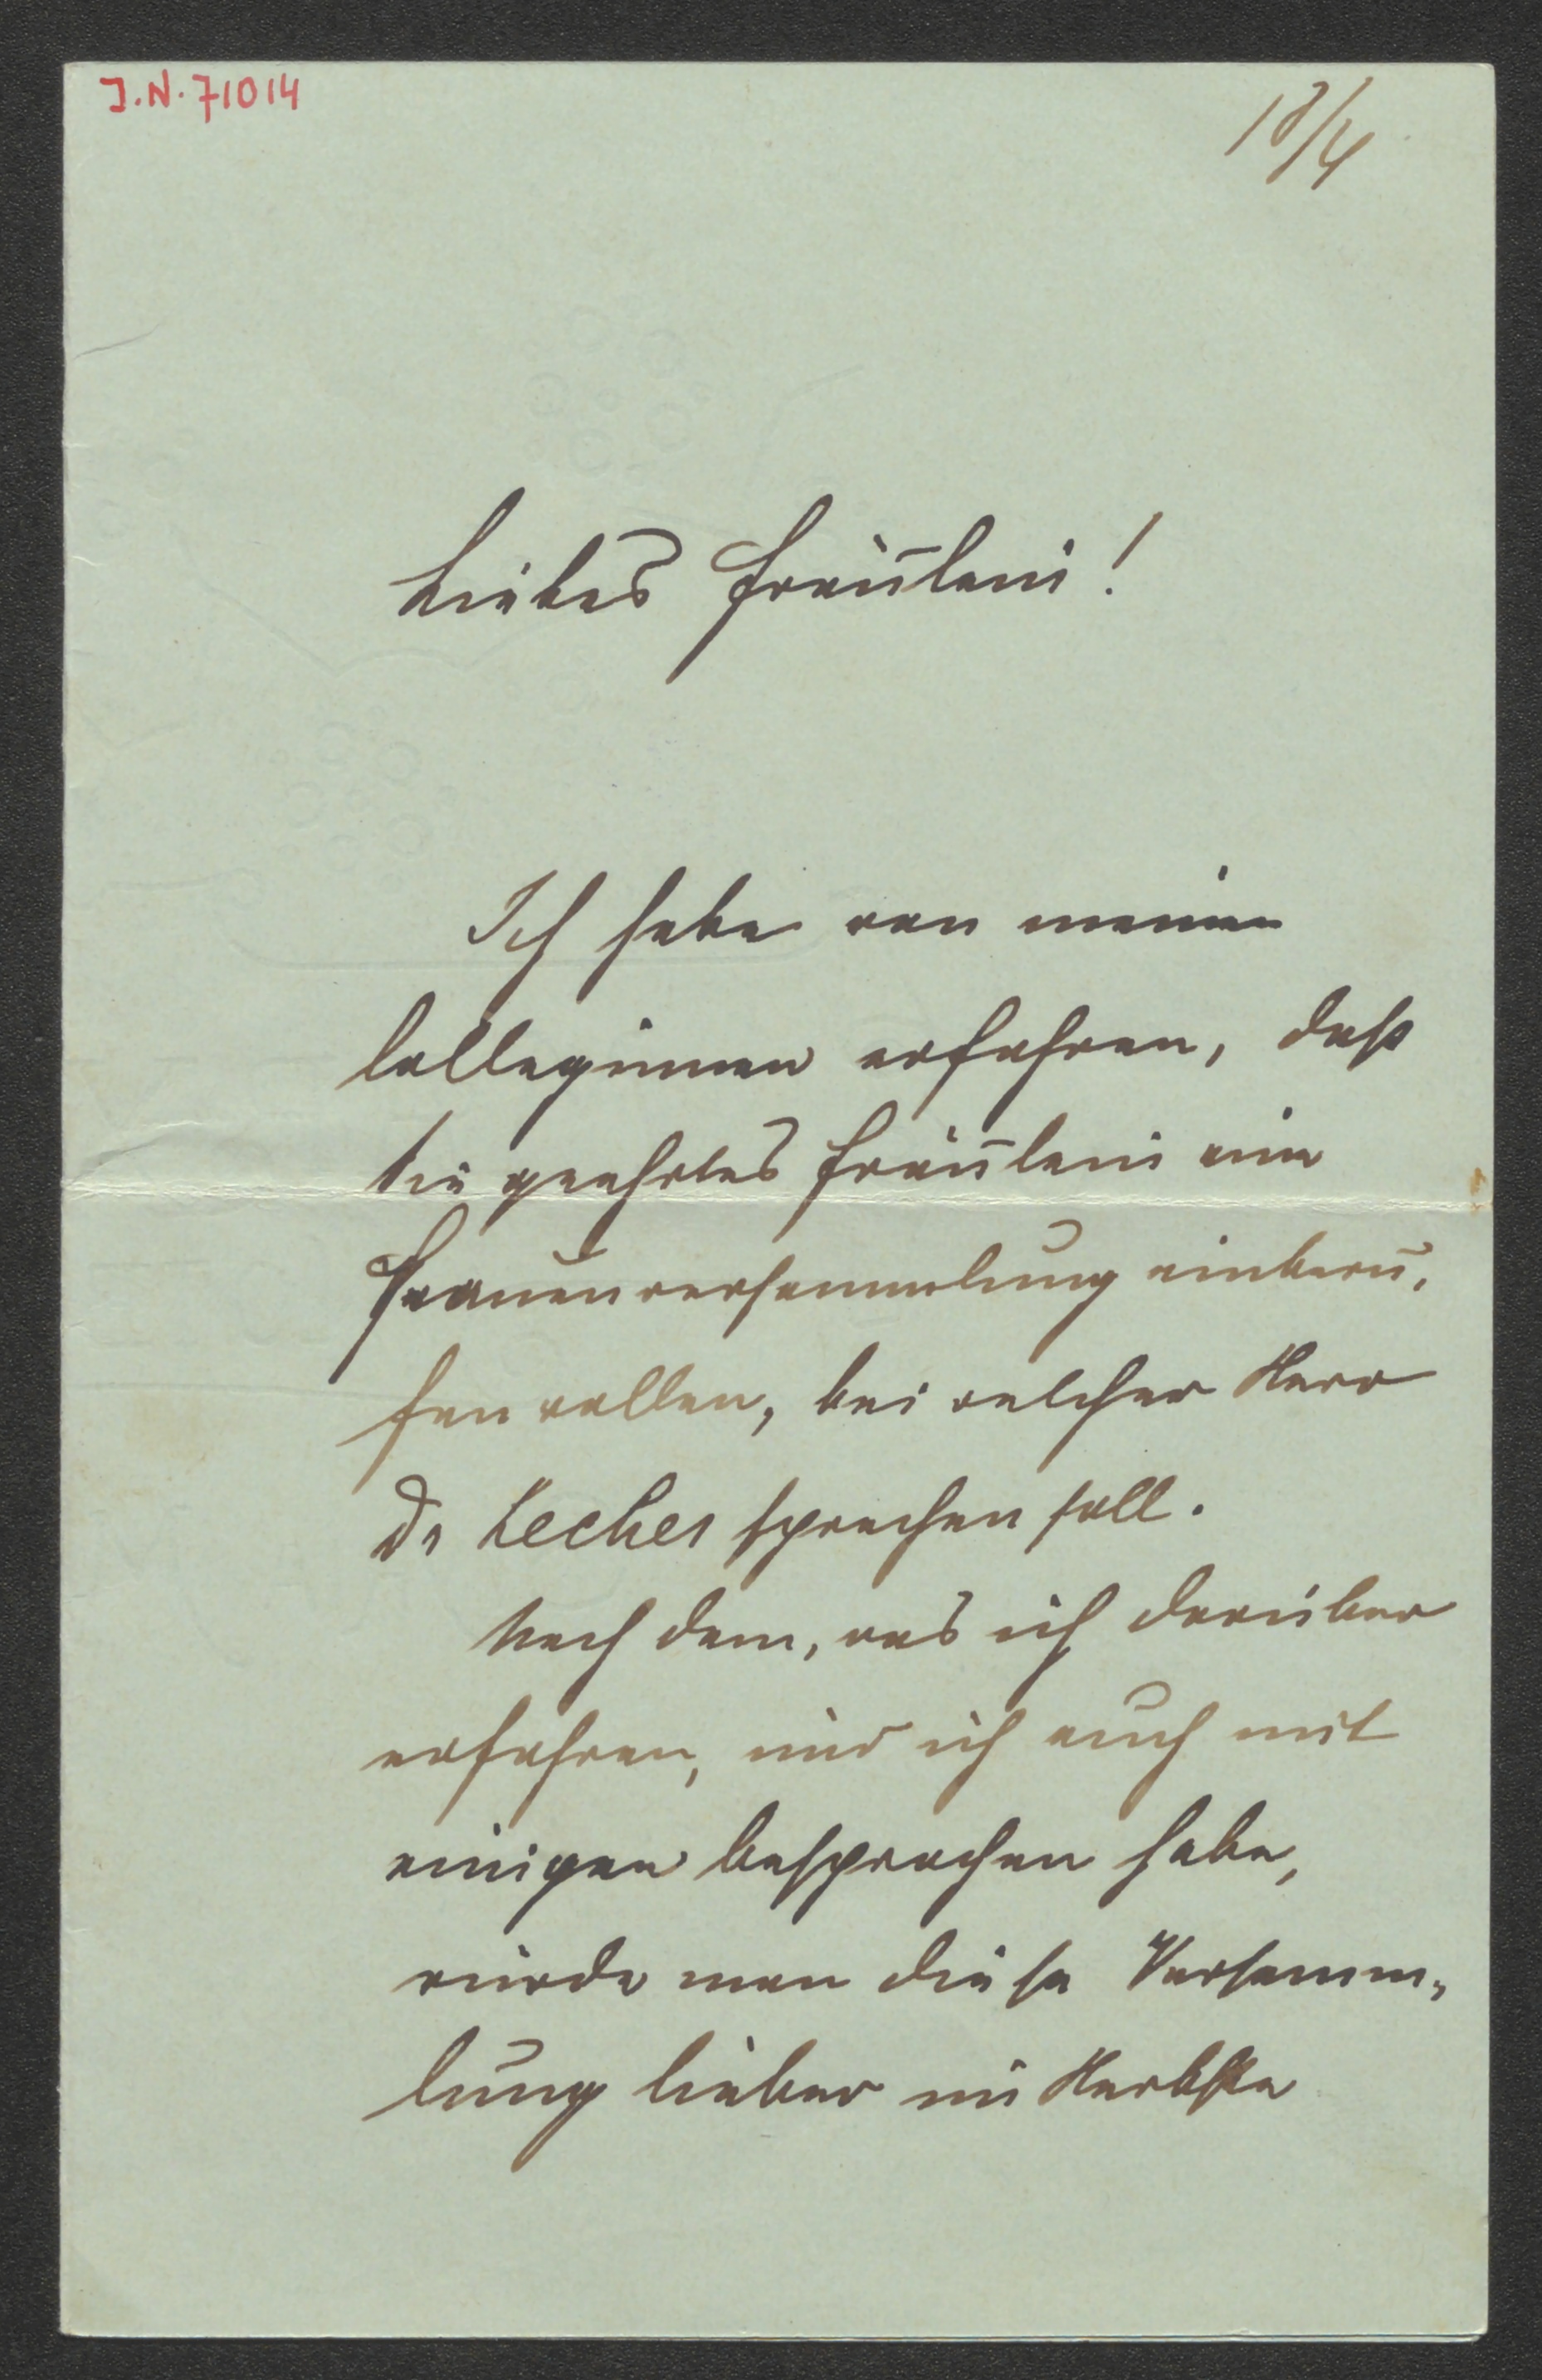 J.N. 71014
18/4
Liebes Fräulein!
Ich habe von meinen
Colleginnen erfahren, daß
Sie geehrtes Fräulein eine
Frauenversammlung einberu-
fen wollen, bei welcher Herr
Dr Lecher sprechen soll.
Nach dem, was ich darüber
erfahren, und ich auch mit
einigen besprochen habe,
würde man diese Versamm-
lung lieber im Herbste